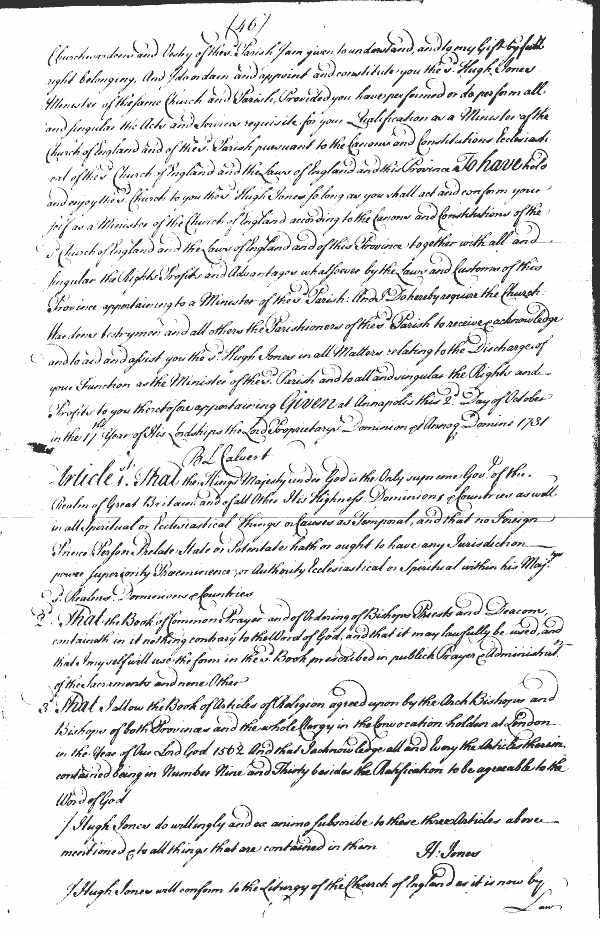 (46)
Churchwardens and Vestry of the sd. Parish I am given to understand, and to my Gift by full
right belonging. And I do ordain and appoint and constitute you the sd. Hugh Jones
Minister of the same Church and Parish, Provided you have performed or do perform all
and singular the Acts and Services requisite for your Qualification as a Minister of the
Church of England and of the sd. Parish pursuant to the Canons and Constitutions Ecclesiasti-
cal of the sd. Church of England and the Laws of England and this Province To have hold
and enjoy the sd. Church to you the sd. Hugh Jones so long as you shall act and conform your
self as a Minister of the Church of England according to the Canons and Constitutions of the
sd. Church of England and the Laws of England and of this Province together with all and
singular the Rights Profits and Advantages whatsoever by the Laws and Customs of this
Province appertaining to a Minister of the sd. Parish: And I Do hereby require the Church-
Wardens Vestrymen and all others the Parishioners of the sd. Parish to receive & acknowledge
and to aid and assist you the sd. Hugh Jones in all Matters relating to the Discharge of
your Function as the Minister of the sd. Parish and to all and singular the Rights and
Profits to you therefore appertaining Given at Annapolis this 2d. Day of October
in the 17th Year of His Lordships the Lord Proprietarys Dominion & Annoq Domini 1731
B L Calvert
Article 1st. That the Kings Majesty under God is the Only supreme Govr. of the
Realm of Great Britain and of all Other His Highness Dominions & Countries as well
in all Spiritual or Ecclesiastical Things or Causes as Temporal, and that no Foreign
Prince Person Prelate State or Potentate hath or ought to have any Jurisdiction
power superiority Preeminence or Authority Ecclesiastical or Spiritual within his Majtys
sd. Realms Dominions & Countries
2d. That the Book of Common Prayer and of Ordering of Bishops Priests and Deacons,
containeth in it nothing contrary to the Word of God, and that it may lawfully be used, and
that I my self will use the form in the sd. Book prescribed in publick Prayer & Administratn.
of the Sacraments and none Other
3d. That I allow the Book of Articles of Religion agreed upon by the Arch Bishops and
Bishops of both Provinces and the whole Clergy in the Convocation holden at London
in the Year of Our Lord God 1562 And that I acknowledge all and Every the Articles therein
contained being in Number Nine and Thirty besides the Ratification to be agreeable to the
Word of God
I Hugh Jones do willingly and ex animo subscribe to these three Articles above
mentioned & to all things that are contained in them H: Jones
I Hugh Jones will conform to the Liturgy of the Church of England as it is now by
Law